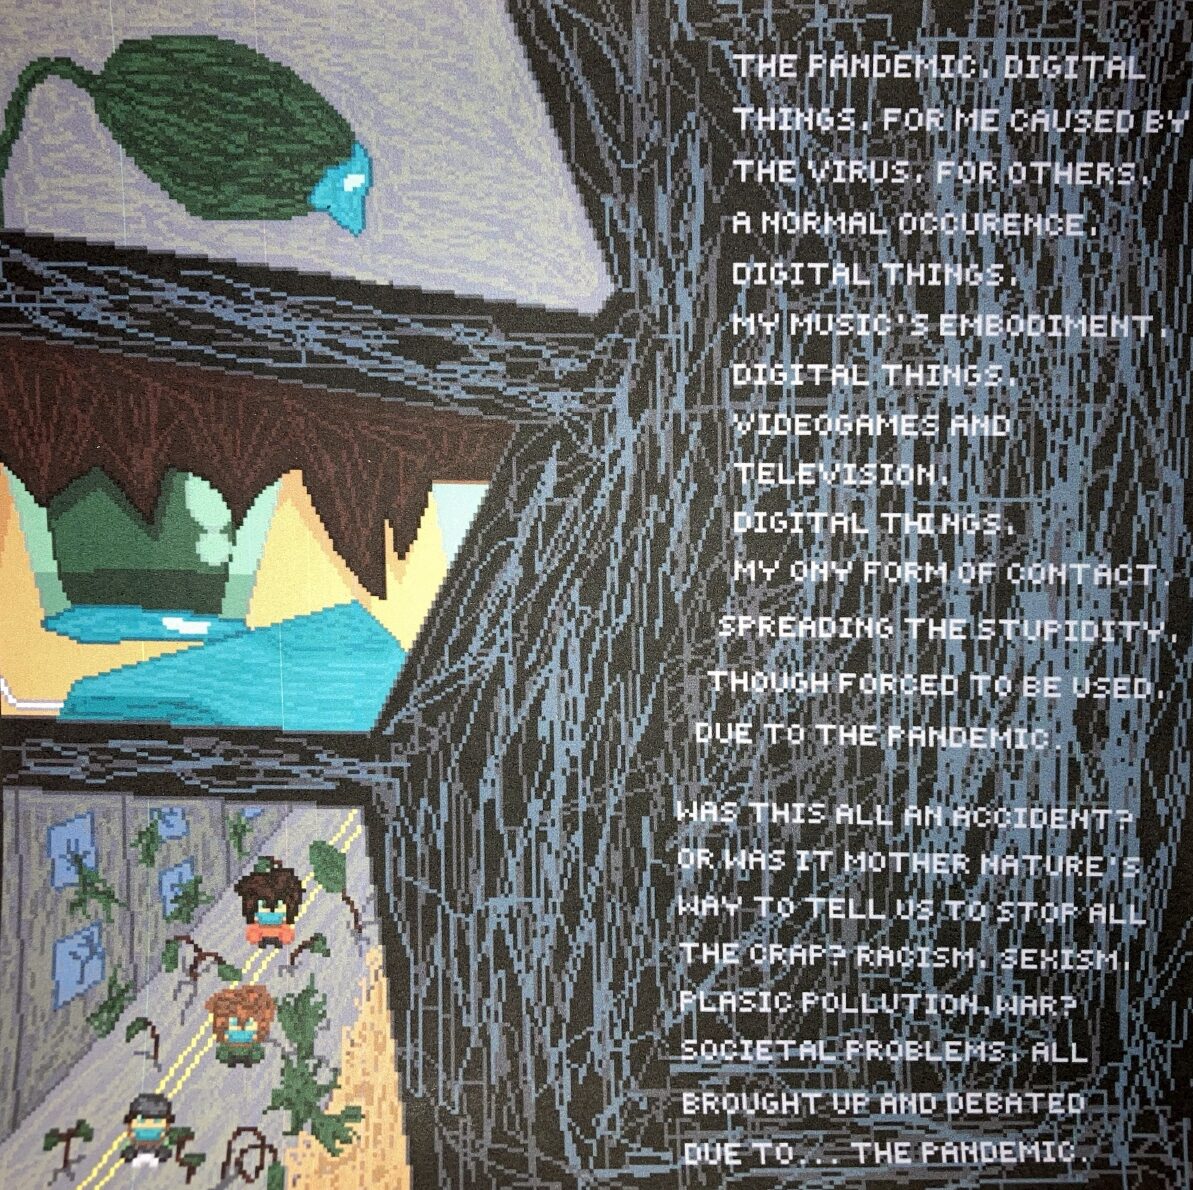 THE PANDEMIC. DIGITAL
THINGS. FOR ME CAUSED BY
THE VIRUS. FOR OTHERS,
A NORMAL OCCURENCE.
DIGITAL THINGS.
MY MUSIC'S EMBODIMENT.
DIGITAL THINGS.
VIDEOGAMES AND
TELEVISION.
DIGITAL THINGS.
MY ONY FORM OF CONTACT.
SPREADING THE STUPIDITY.
THOUGH FORCED TO BE USED,
DUE TO THE PANDEMIC.
WAS THIS ALL AN ACCIDENT?
OR WAS IT MOTHER NATURE'S
WAY TO TELL US TO STOP ALL
THE CRAP? RACISM, SEXISM,
PLASIC POLLUTION, WAR?
SOCIETAL PROBLEMS, ALL
BROUGHT UP AND DEBATED
DUE TO... THE PANDEMIC.